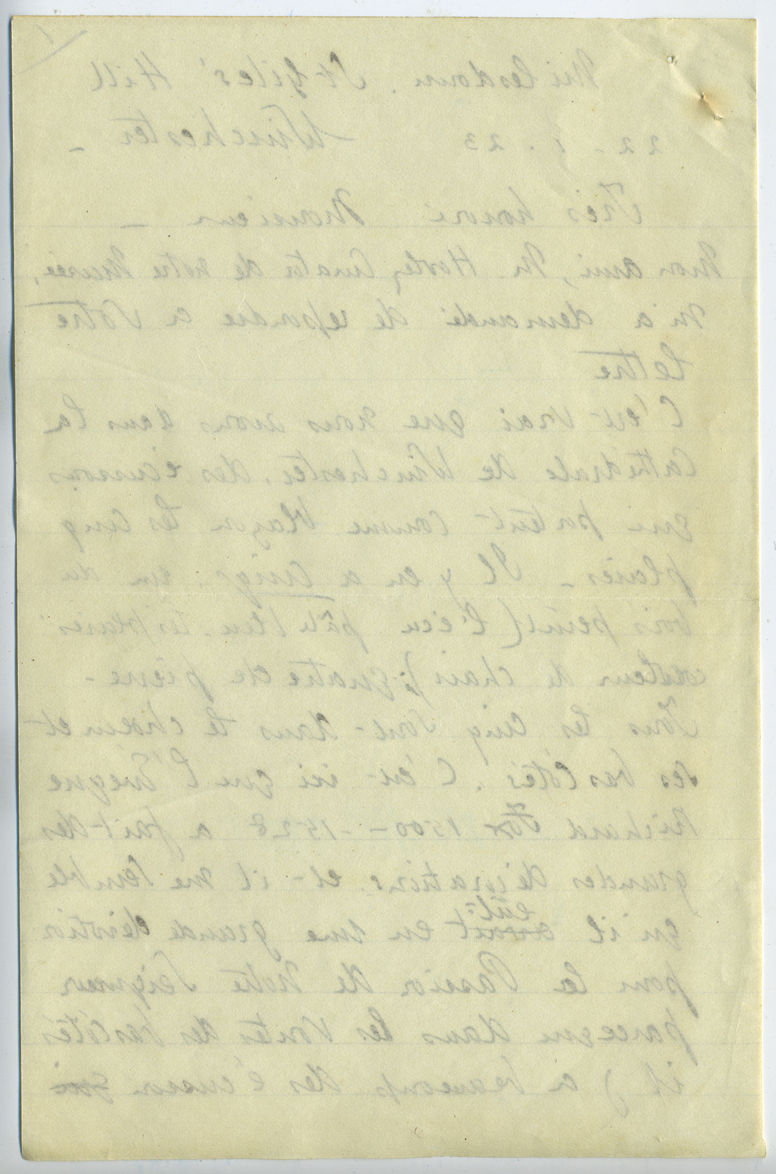 Milesdown. St Giles' Hill
Winchester -
22 - 1 - 23
Très honoré Monsieur -
Mon ami, M. Hooley, Curator de notre Musée,
m'a demandé de repondre a Votre
lettre
C'est vrai que nous avons dans la
Cathédrale de Winchester, des écussons
qui portent comme blazon les cinq
plaies - Il y en a cinq. un du
bois peint (l'écu pâle bleu, les plaies
couleur de chair); quatre de pierre -
Tous les cinq sont dans le choeur et
ses bas côtés. C'est ici que l'Eveque
Richard Fox 1500 - 1528 a fait des
grandes décorations, et il me semble
qu'il avait eût eu une grande dévotion
pour la Passion de Notre Seigneur
parceque dans les voutes des bas côtés
il y a beaucoup des écusson qui